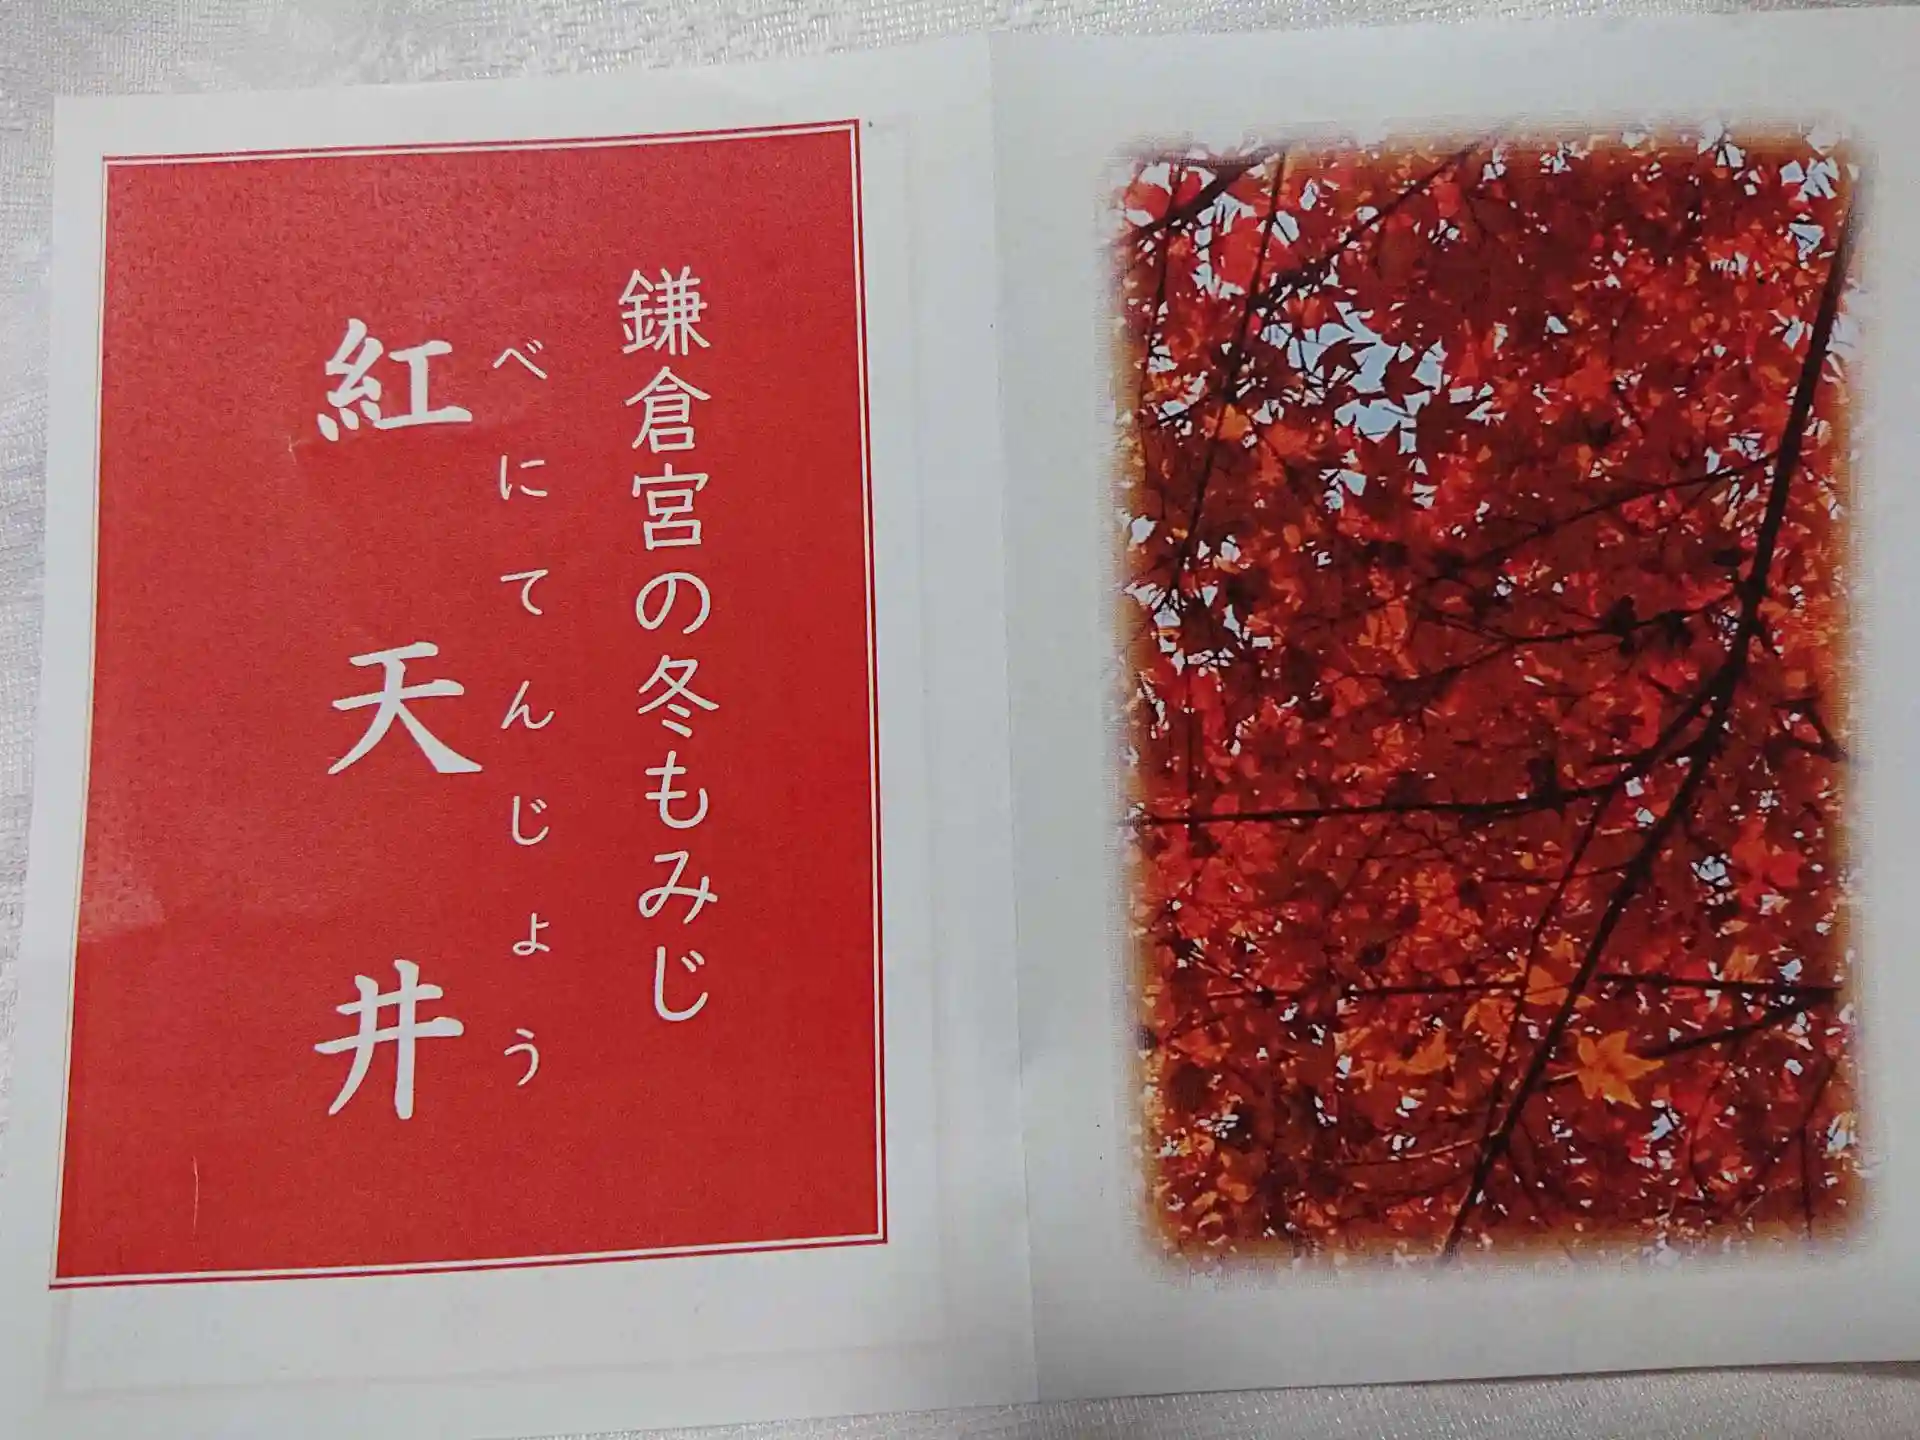 鎌倉宮の冬もみじ
べにてんじょう
紅天井